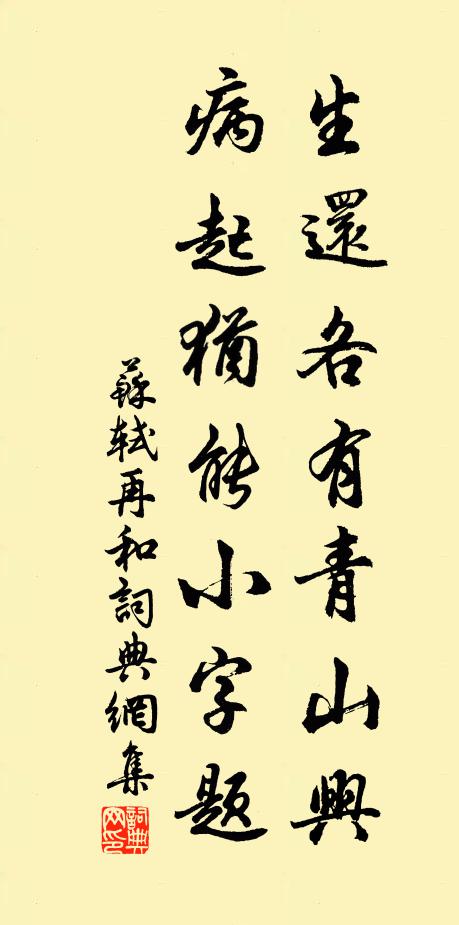 生還各有青山興
病起猶能小字題
蘇軾再和詞典網集
詞典網印